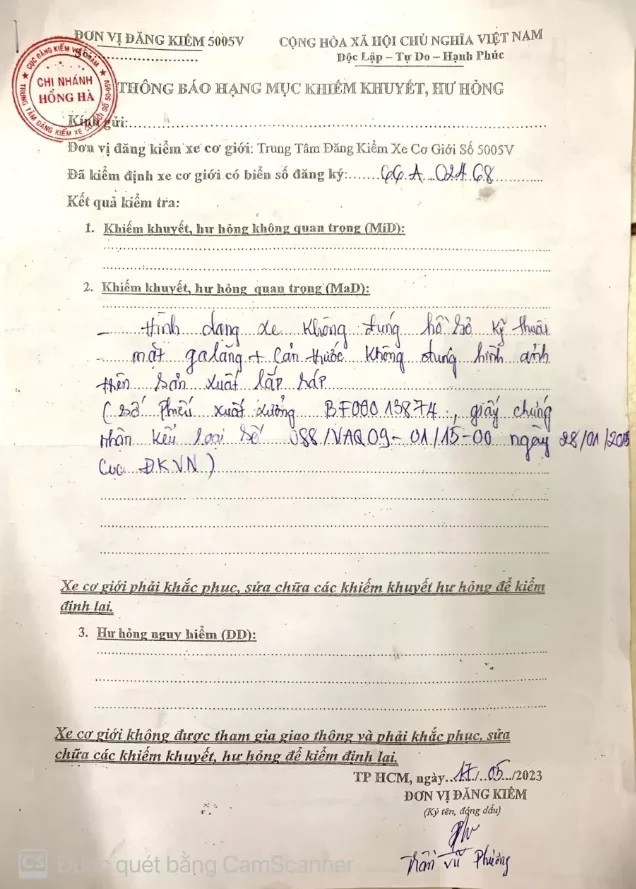 ĐƠN VỊ ĐĂNG KIỂM 5005V
CỘNG HÒA XÃ HỘI CHỦ NGHĨA VIỆT NAM
Số
Độc Lập – Tự Do – Hạnh Phúc
CỤC ĐĂNG KIỂM VIỆT NAM
CHI NHÁNH
HỒNG HÀ
TRUNG TÂM ĐĂNG KIỂM XE CƠ GIỚI
THÔNG BÁO HẠNG MỤC KHIẾM KHUYẾT, HƯ HỎNG
Kính gửi:
Đơn vị đăng kiểm xe cơ giới: Trung Tâm Đăng Kiểm Xe Cơ Giới Số 5005V
Đã kiểm định xe cơ giới có biển số đăng ký: 66A 024.68
Kết quả kiểm tra:
1. Khiếm khuyết, hư hỏng không quan trọng (MiD):
2. Khiếm khuyết, hư hỏng quan trọng (MaD):
- Hình dạng xe không đúng hồ sơ kỹ thuật
- mặt galăng + Cản trước không đúng hình ảnh
trên sản xuất lắp ráp
(Số Phiếu xuất xưởng BF000 13874, giấy chứng
nhận kiểu loại số 088/VAQ09-01/15-00 ngày 28/01/2015
Cục ĐKVN)
Xe cơ giới phải khắc phục, sửa chữa các khiếm khuyết hư hỏng để kiểm
định lại.
3. Hư hỏng nguy hiểm (DD):
Xe cơ giới không được tham gia giao thông và phải khắc phục, sửa
chữa các khiếm khuyết, hư hỏng để kiểm định lại.
TP HCM, ngày 17/05/2023
ĐƠN VỊ ĐĂNG KIỂM
(Ký tên, đóng dấu)
Trần Vũ Phương
CS Được quét bằng CamScanner